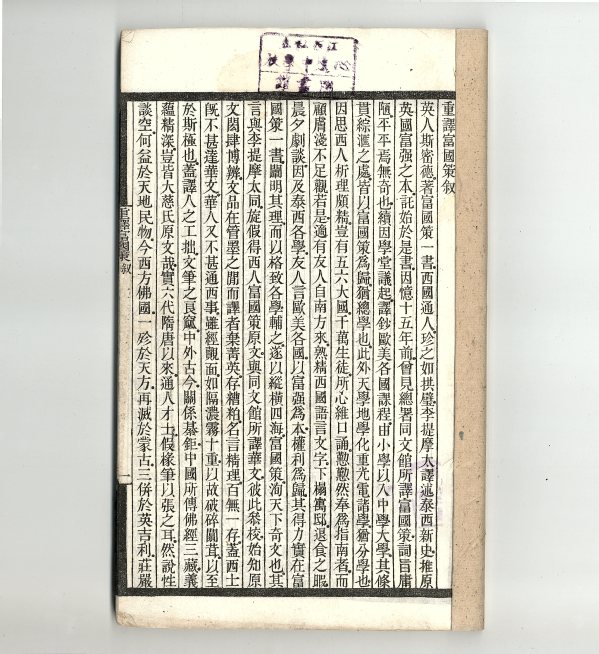 重譯富國策叙
英人斯密德著富國策一書西國通人珍之如拱璧李提摩太譯述泰西新史推原
英國富强之本託始於是書因憶十五年前曾見總署同文館所譯富國策詞旨庸
陋平平焉無奇也續因學堂議起譯鈔歐美各國課程由小學以入中學大學其條
貫綜滙之處皆以富國策爲歸猶總學也此外天學地學化重光電諸學猶分學也
因思西人析理頗精豈有五六大國千萬生徒所心維口誦懃懃然奉爲指南者而
顧膚淺不足觀若是適有友人自南方來熟精西國語言文字下榻寓邸退食之暇
晨夕劇談因及泰西各學友人言歐美各國以富强爲本權利爲歸其得力實在富
國策一書闡明其理而以格致各學輔之遂以縱橫四海富國策洵天下奇文也其
言與李提摩太同旋假得西人富國策原文與同文館所譯華文彼此參校始知原
文閎肆博辨文品在管墨之閒而譯者棄菁英存糟粕名言精理百無一存蓋西士
旣不甚達華文華人又不甚通西事雖經覿面如隔濃霧十重以故破碎闒茸以至
於斯極也蓋譯人之工拙文筆之良窳中外古今關係綦鉅中國所傳佛經三藏義
蘊精深豈皆大慈氏原文哉實六代隋唐以來通人才士假椽筆以張之耳然說性
談空何益於天地民物今西方佛國一殄於天方再滅於蒙古三倂於英吉利莊嚴
重譯富國策 叙